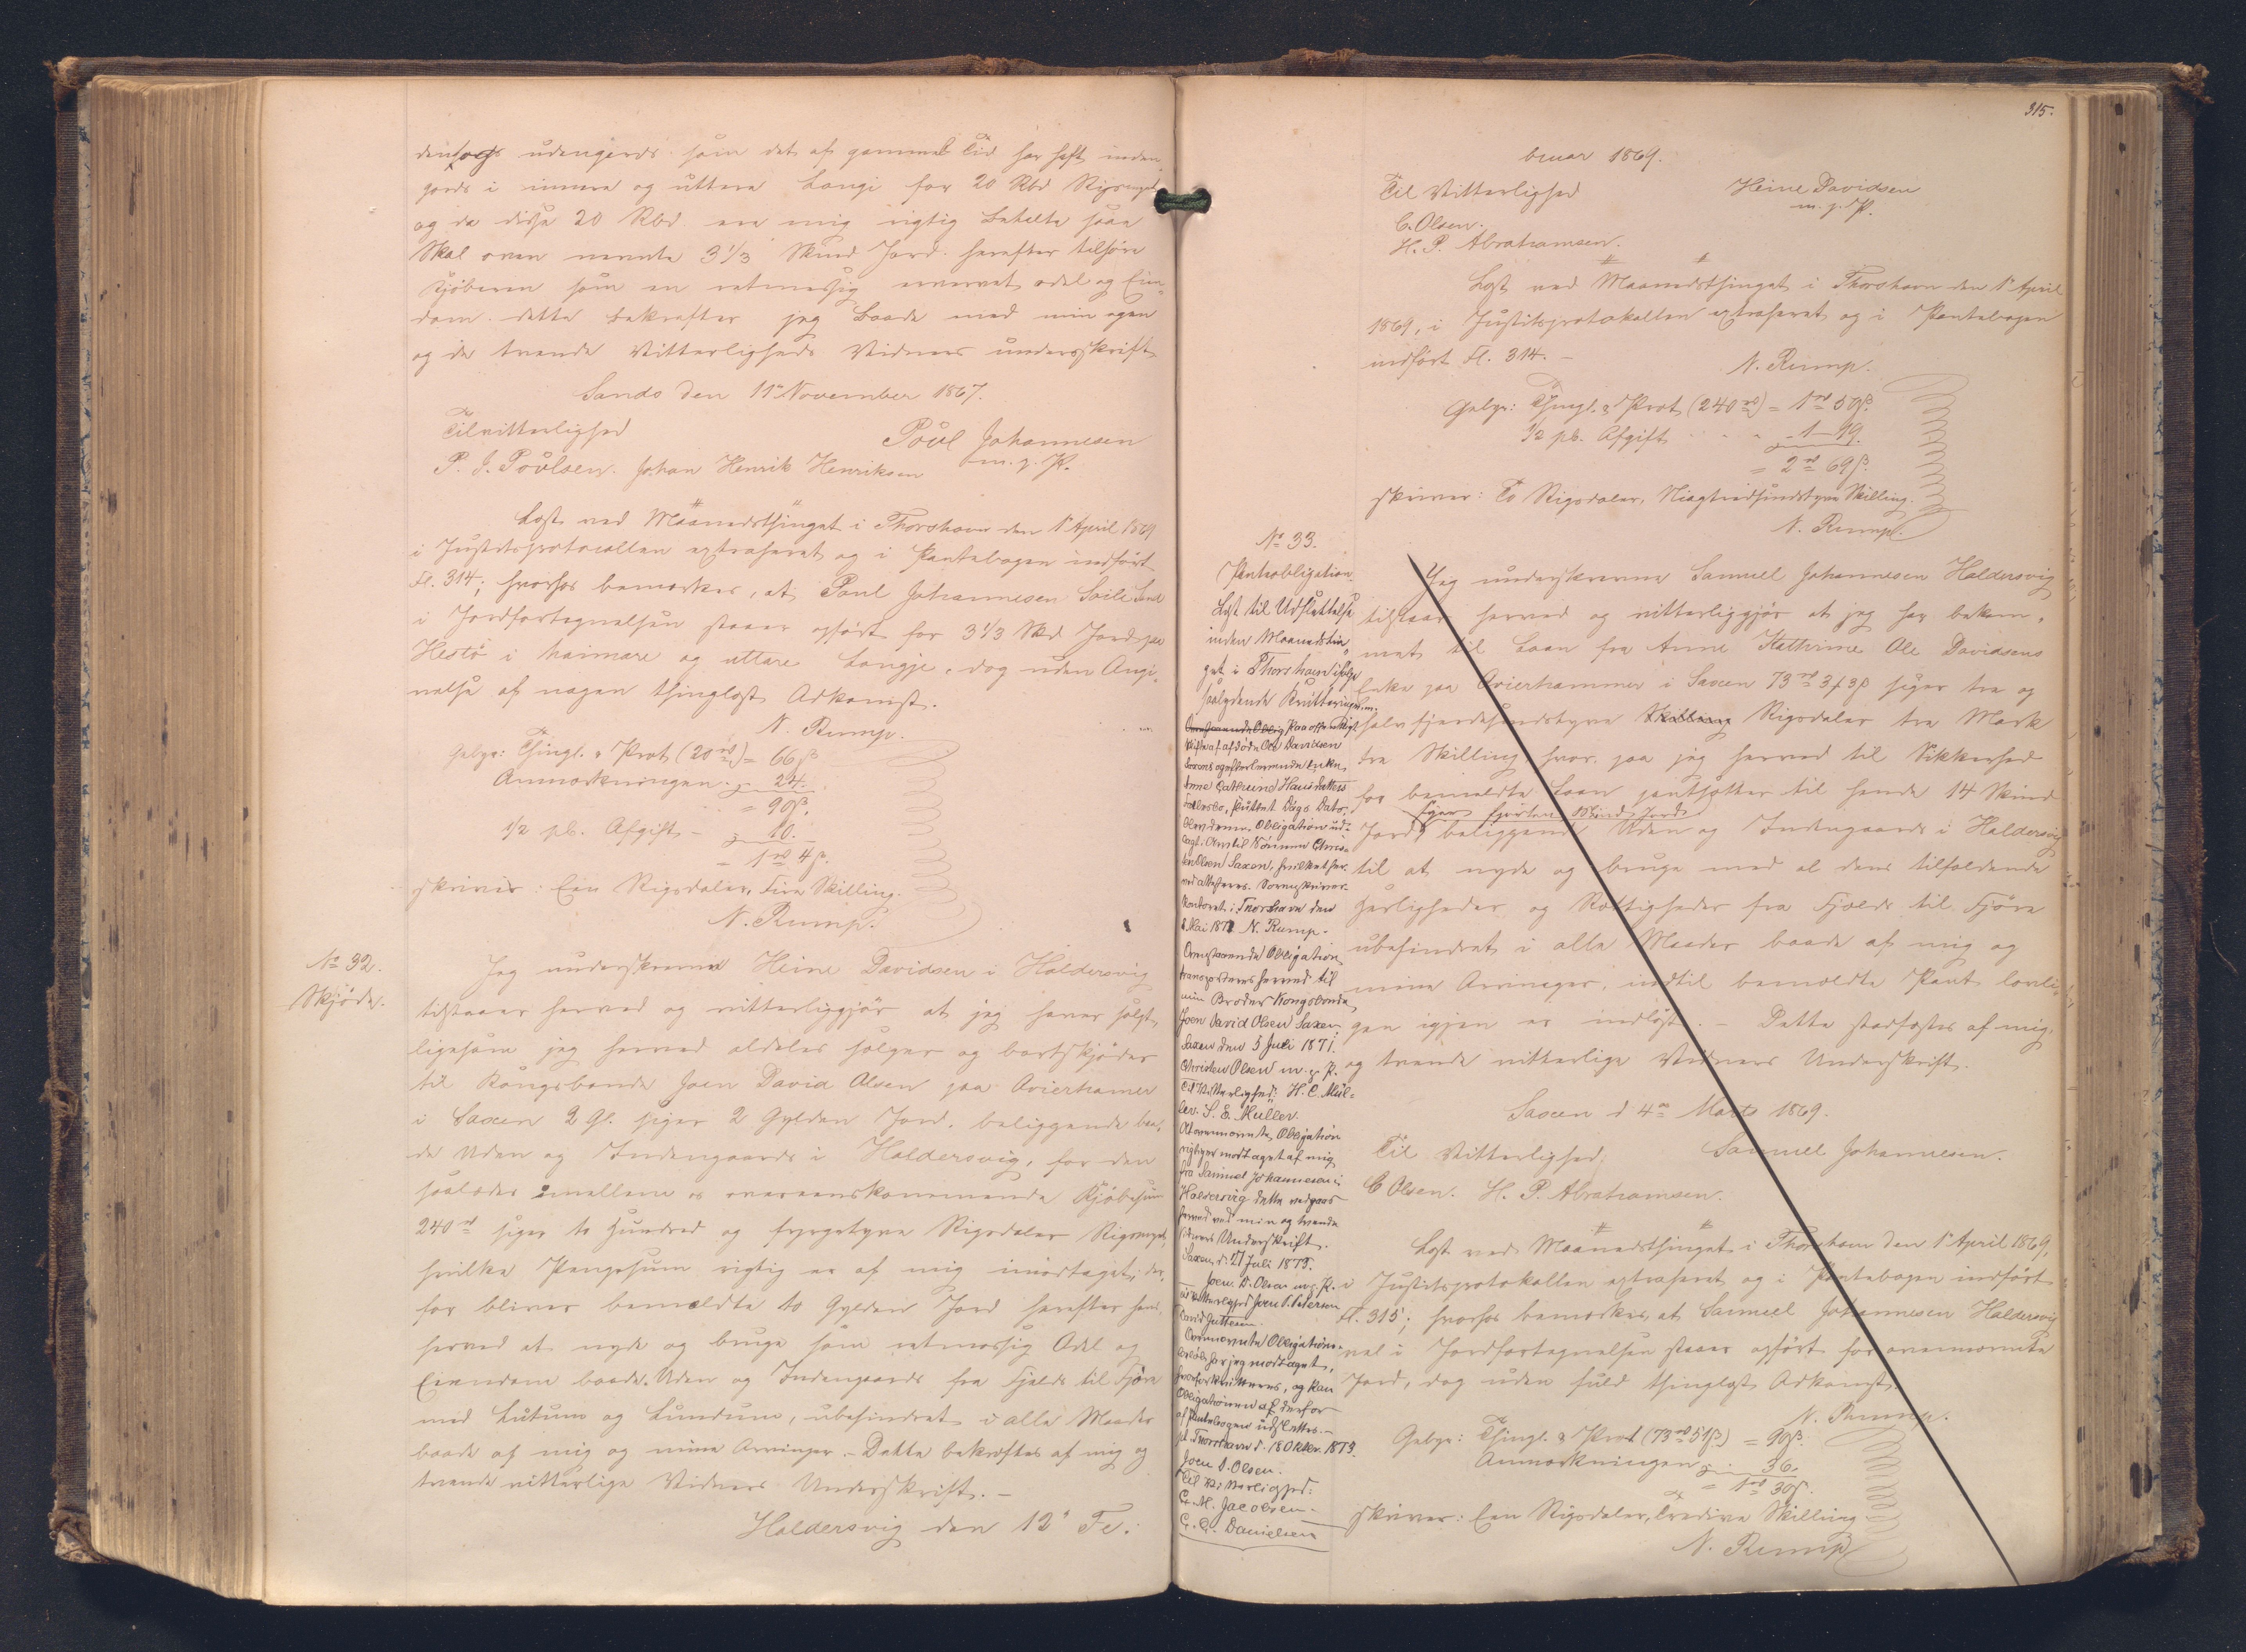 densogs udengards som det af gammel Tid har haft inden¬
gards i innera og uttera Longi for 20 Rbd Rigsmynt
og da disse 20 Rbd ere mig rigtig betalte saa
Skal oven nevnte 3 1/3 Skind Jord herefter tilhöre
Kjöberen som en retmessig erværvet odel og Ein¬
dom. dette bekrefter jeg baade med min egen
og de tvende Vitterligheds Vidners underskrift
Sando den 11te November 1867.
Tilvitterlighed
Poúl Johannesen
P. J. Poúlsen. Johan Henrik Henriksen
m. p. P.
Læst ved Maanedsthinget i Thorshavn den 1 April 1869
i Justitsprotocollen extraheret og i Pantebogen indfört
Fl. 314; hvorhos bemærkes, at Poul Johannesen Sand
i Jordfortegnelsen staaer opfört for 3 1/3 Skd Jord paa
Hestö i haimare og uttare Longje, dog uden Angi¬
velse af nogen thinglæst Adkomst.
N. Rump.
Gebyr: Thingl. & Prot (20 rd) = 66 ß
Anmærkningen - 24.
= 90 ß.
1/2 pCt. Afgift - 10.
= 1 rd 4 ß.
skriver: Een Rigsdaler, Fire Skilling.
N. Rump.
No 32.
Skjöde.
Jeg underskrevne Heine Davidsen i Haldersvig
tilstaaer herved og vitterliggjör at jeg haver solgt,
ligesom jeg herved aldeles sælger og bortskjöder
til Kongsbonde Joen David Olsen paa Ovierhamer
i Saxen 2 Gl. siger 2 Gylden Jord, beliggende baa¬
de Uden og Indengaards i Haldersvig, for den
saaledes imellem os overeenskommende Kjöbesum
240 rd siger to Hundred og fyrgetyve Rigsdaler Rigsmynt,
hvilke Pengesum rigtig er af mig imodtaget; der¬
for bliver bemældte to Gylden Jord herefter ham
herved at nyde og bruge som retmæssig Odel og
Eiendom baade Uden og Indengaards fra Fjelds til Fjöre
med Lutum og Lundum, ubehindret i alle Maader
baade af mig og mine Arvinger. - Dette bekræftes af mig og
tvende vitterlige Vidners Underskrift. -
Haldersvig den 12te Fe:
315.
bruar 1869.
Til Vitterlighed
Heine Davidsen
m. p. P.
C. Olsen.
H. P. Abrahamsen.
Læst ved Maanedsthinget i Thorshavn den 1 April
1869, i Justitsprotokollen extraheret og i Pantebogen
indfört Fl. 314. -
N. Rump.
Gebyr: Thingl. & Prot (240 rd) = 1 rd 50 ß.
1/2 pCt. Afgift - 1 - 19.
= 2 rd 69 ß.
skriver: To Rigsdaler, Niogtredsindstyve Skilling.
N. Rump.
No 33.
Panteobligation.
Læst til Udslettelse
inden Maanedsthin¬
get i Thorshavn ifölge
saalydende Kvitteringer m.m.
Skiftet af afdöde Ole Davidsen
Saxens og efterlevende Enke,
Anne Cathrine Hansdatters
Fællesbo, sluttet Dags Dato,
blev denne Obligation ud¬
lagt Arvetil Sönnen Chris¬
ten Olsen Saxen, hvilket her¬
ved attesteres. Sorenskriver¬
kontoret i Thorshavn den
8 Mai 1871 N. Rump.
Ovenstaaende Obligation
transporteres herved til
min Broder Kongsbonde
Joen David Olsen Saxen
Saxen den 5 Juli 1871.
Christen Olsen m. p. P.
Til Vitterlighed: H. C. Mül¬
ler. S. E. Müller.
At ovennævnte Obligation
rigtig er modtaget af mig
fra Samuel Johannesen i
Haldersvig dette vedgaaes
herved ved min og tvende
Vidners Underskrift.
Saxen, d: 27 Juli 1873.
Joen D. Olsen m. p. P.
Til Vitterlighed Joen P. Petersen
David Guttesen.
Ovennævnte Obligations
belöb har jeg modtaget,
hvorfor kvitteres, og kan
Obligationen af derfor
af Pantebogen udslettes. -
pt. Thorshavn d. 18 Oktbr. 1873.
Joen D. Olsen.
Til Vitterlighed:
G. M. Jacobsen -
G. C. Danielsen
Jeg underskrevne Samuel Johannesen Haldersvig
tilstaaer herved og vitterliggjör at jeg har bekom¬
met til Laan fra Anne Kathrine Ole Davidsens
Enke paa Ovierhammer i Saxen 73 rd 3 ß siger tre og
halvfjerdsindstyve Skilling Rigsdaler tre Mark
tre Skilling hvor paa jeg herved til Sikkerhed
for bemældte Laan pantsetter til hende 14 Skind
siger fjorten Skind Jord
Jord, beliggende Uden og Indengaards i Haldersvig
til at nyde og bruge med al dens tilfaldende
Herligheder og Rettigheder fra Fjelds til Fjöre
ubehindret i alle Maader baade af mig og
mine Arvinger, indtil bemældte Pant lovli¬
gen igjen er indlöst. - Dette stadfæstes af mig
og tvende vitterlige Vidners Underskrift.
Saxen d 4de Marts 1869.
Til Vitterlighed:
Samuel Johannesen.
C Olsen. H. P. Abrahamsen.
Læst ved Maanedsthinget i Thorshavn den 1 April 1869,
i Justitsprotokollen extraheret og i Pantebogen indfört
Fl. 315; hvorhos bemærkes, at Samuel Johannesen Haldersvig
vel i Jordfortegnelsen staaer opfört for ovennævnte
Jord, dog uden fuld thinglæst Adkomst.
N. Rump.
Gebyr: Thingl. & Prot (73 rd 51 ß) = 90 ß.
Anmærkningen - 36.
= 1 rd 30 ß.
skriver: Een Rigsdaler, Tredive Skilling
N. Rump